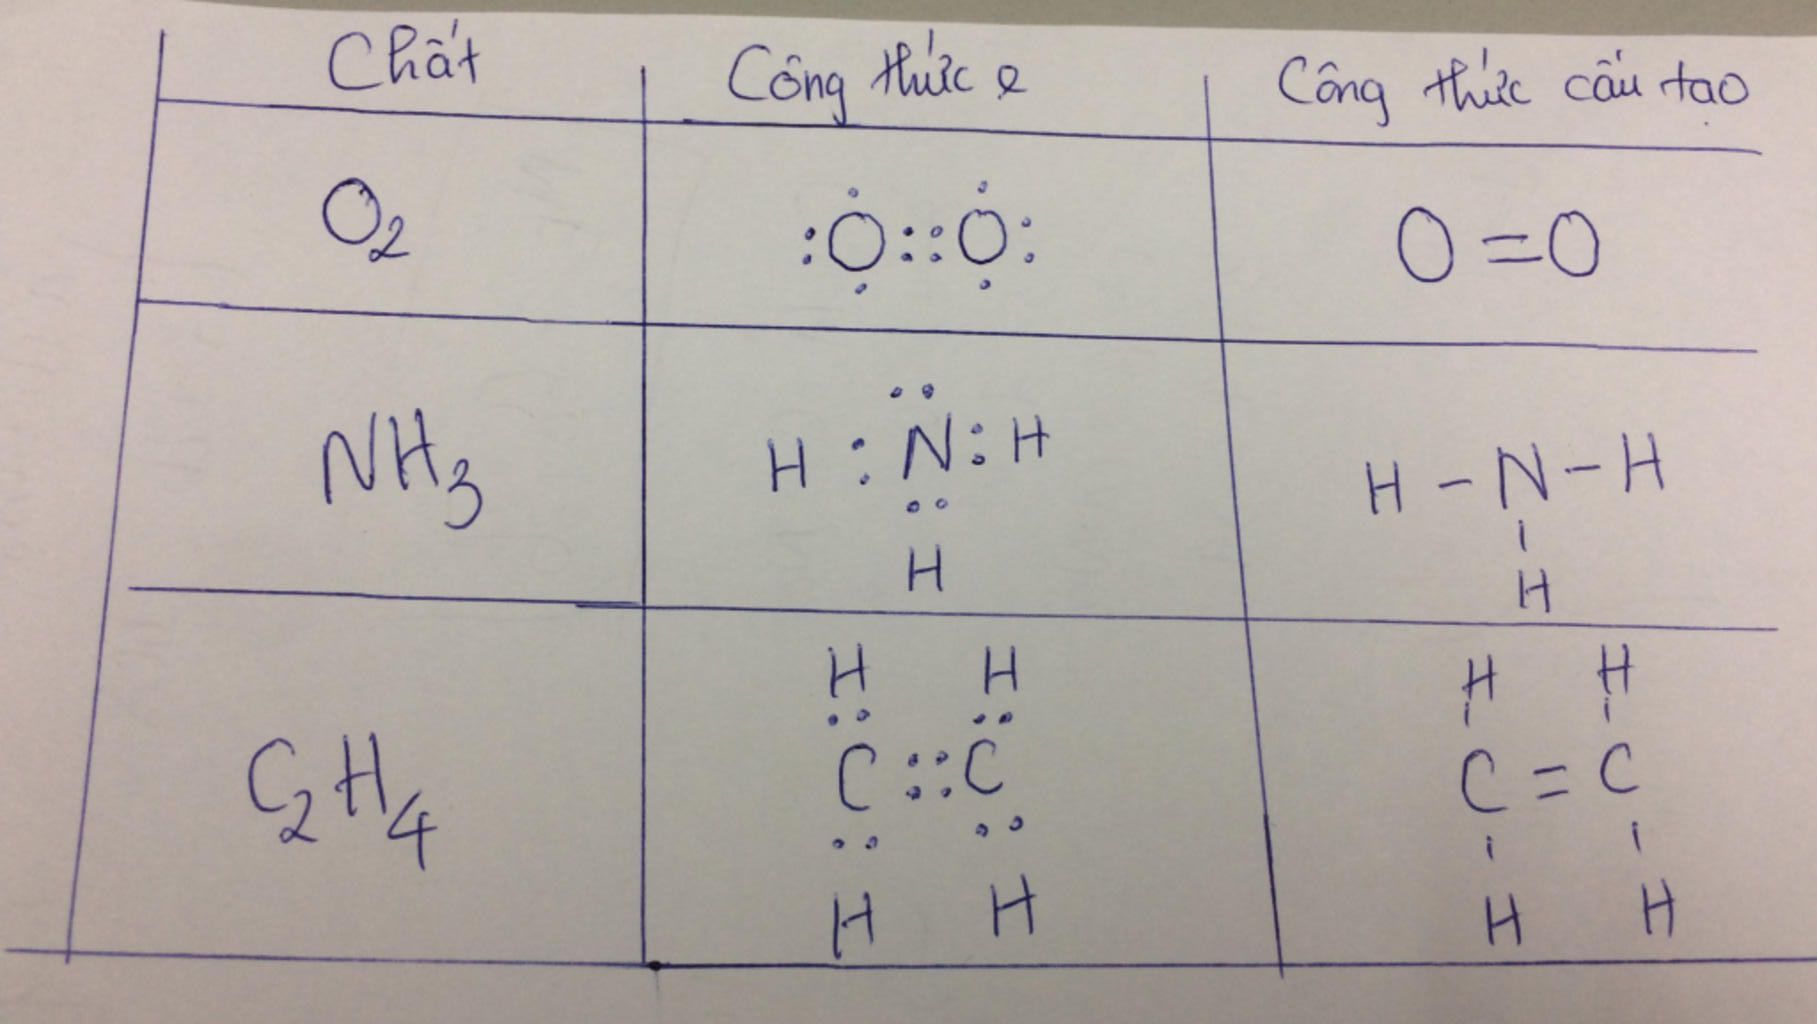 Chất Công thức e Công thức cấu tạo
O₂ :Ọ̇::Ọ̇: O=O
NH₃
··
H : N : H
··
H
H - N - H
|
H
C₂H₄
H H
·· ··
C :: C
·· ··
H H
H H
| |
C = C
| |
H H